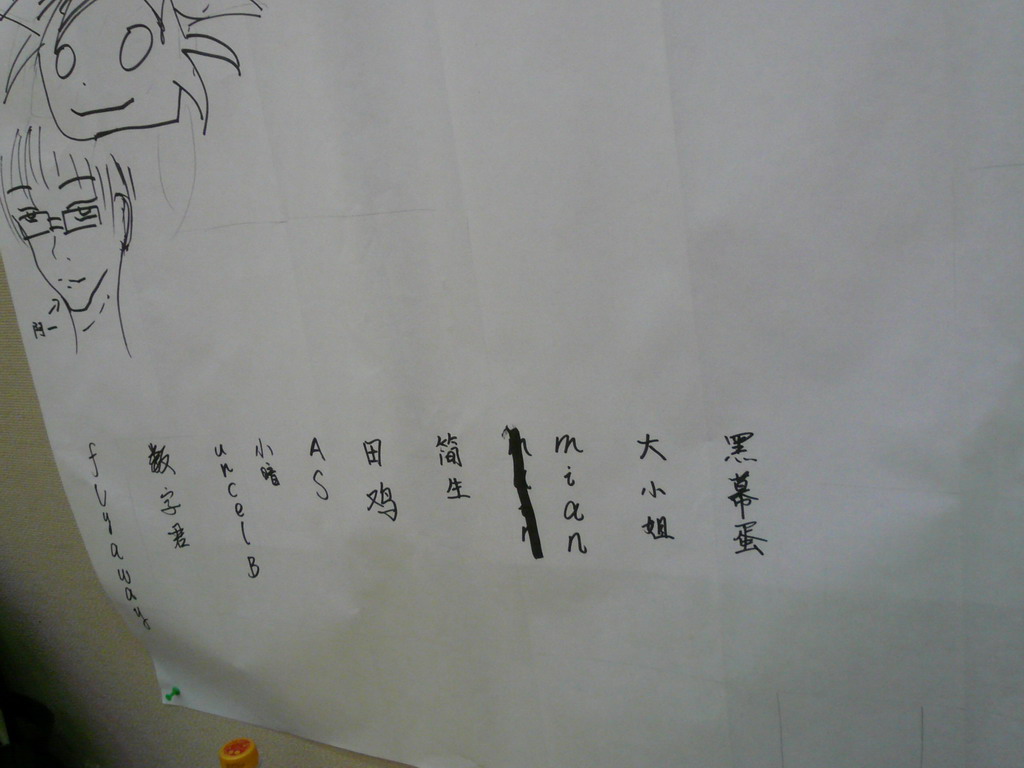 flyaway
数字君
uncelB
小暗
AS
田鸡
简生
mian
大小姐
黑幕蛋